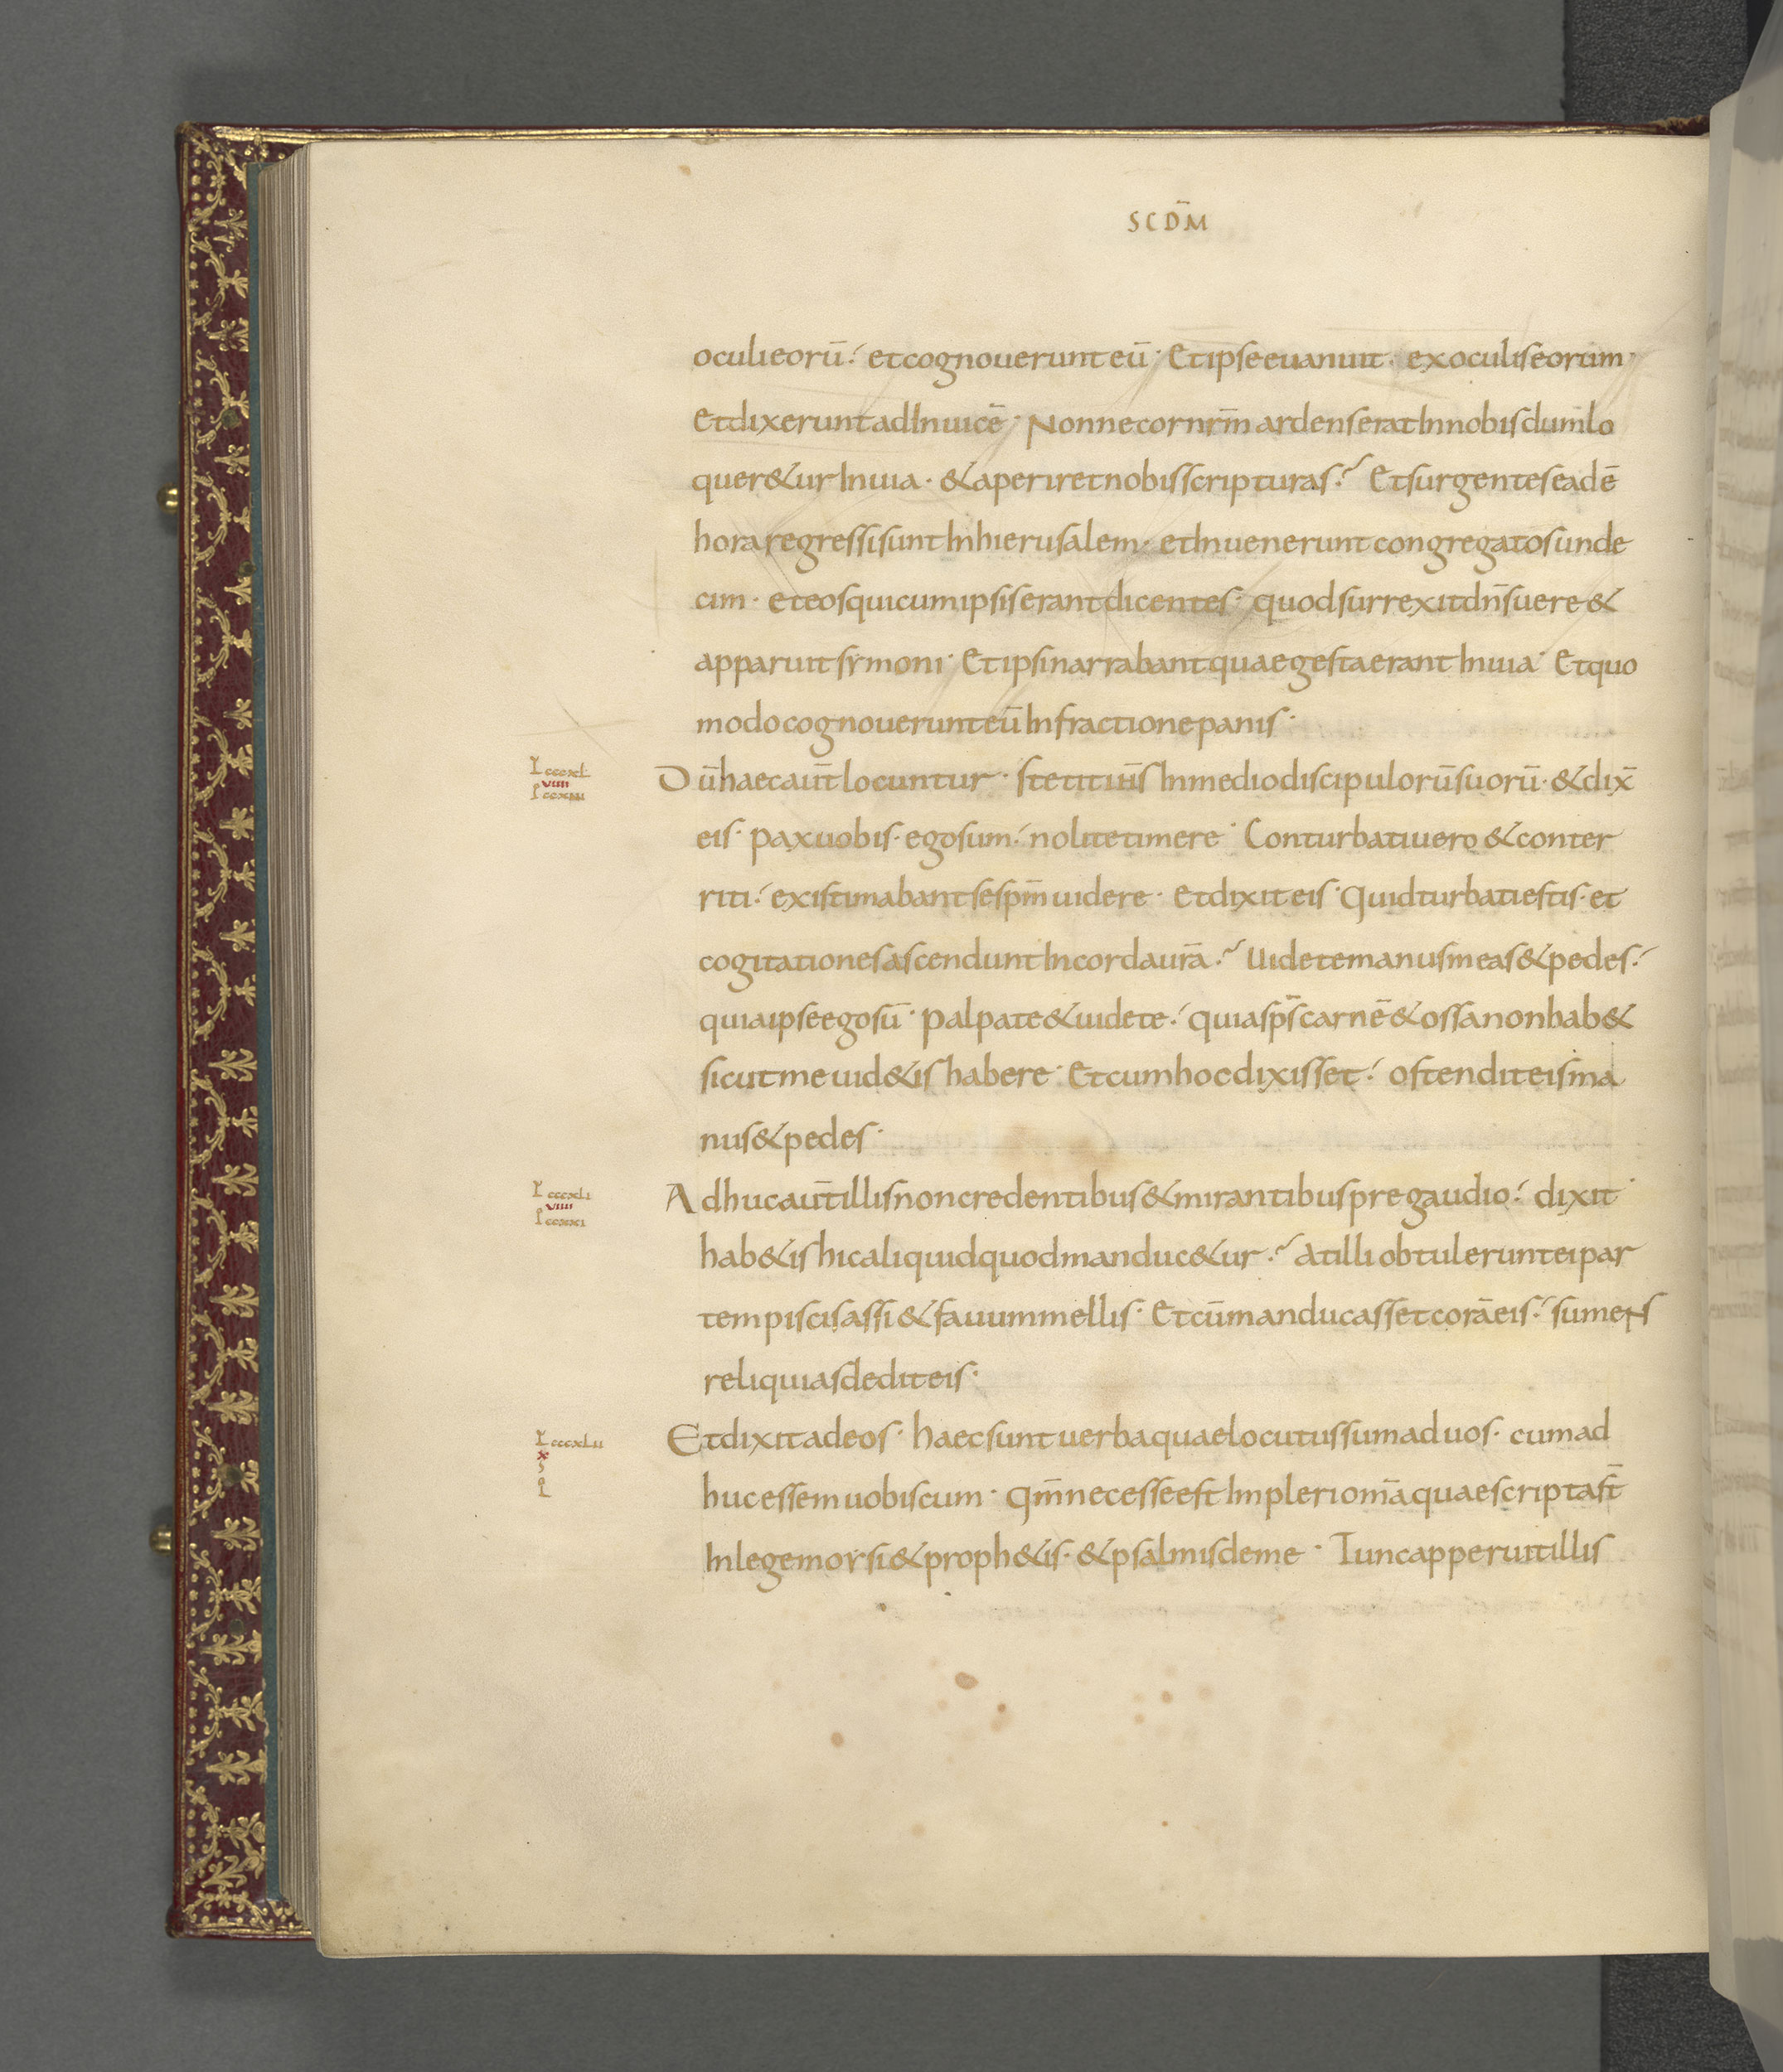 SCD̄M
oculi eorū· et cognouerunt eū· Et ipse euanuit· ex oculis eorum·
Et dixerunt ad Inuicē· Nonne cor nr̄m ardens erat In nobis dum lo
quer&ur In uia· & aperiret nobis scripturas? Et surgentes eadē
hora regressi sunt In hierusalem· et Inuenerunt congregatos unde
cim· et eos qui cum ipsis erant dicentes· quod surrexit dn̄s uere &
apparuit symoni· Et ipsi narrabant quae gesta erant In uia· Et quo
modo cognouerunt eū In fractione panis·
L cccxl
viiii
Dū haec aut̄ locuntur· stetit ih̄s In medio discipulorū suorū· & dix̄
eis· pax uobis· ego sum· nolite timere· Conturbati uero & conter
riti· existimabant se sp̄m uidere· Et dixit eis· Quid turbati estis· et
cogitationes ascendunt In corda ur̄a? Uidete manus meas & pedes·
quia ipse ego sū· palpate & uidete· quia sp̄s carnē & ossa non hab&
sicut me uid&is habere· Et cum hoc dixisset· ostendit eis ma
nus & pedes·
L cccxli
viiii
Adhuc aut̄ illis non credentibus & mirantibus pre gaudio· dixit·
hab&is hic aliquid quod manduc&ur? At illi obtulerunt ei par
tem piscis assi & fauum mellis· Et cū manducasset corā eis· sumens
reliquias dedit eis·
L cccxlii
x
Et dixit ad eos· haec sunt uerba quae locutus sum ad uos· cum ad
huc essem uobiscum· qm̄ necesse est Impleri om̄a quae scripta st̄
In lege moysi & proph&is· & psalmis de me· Tunc apperuit illis